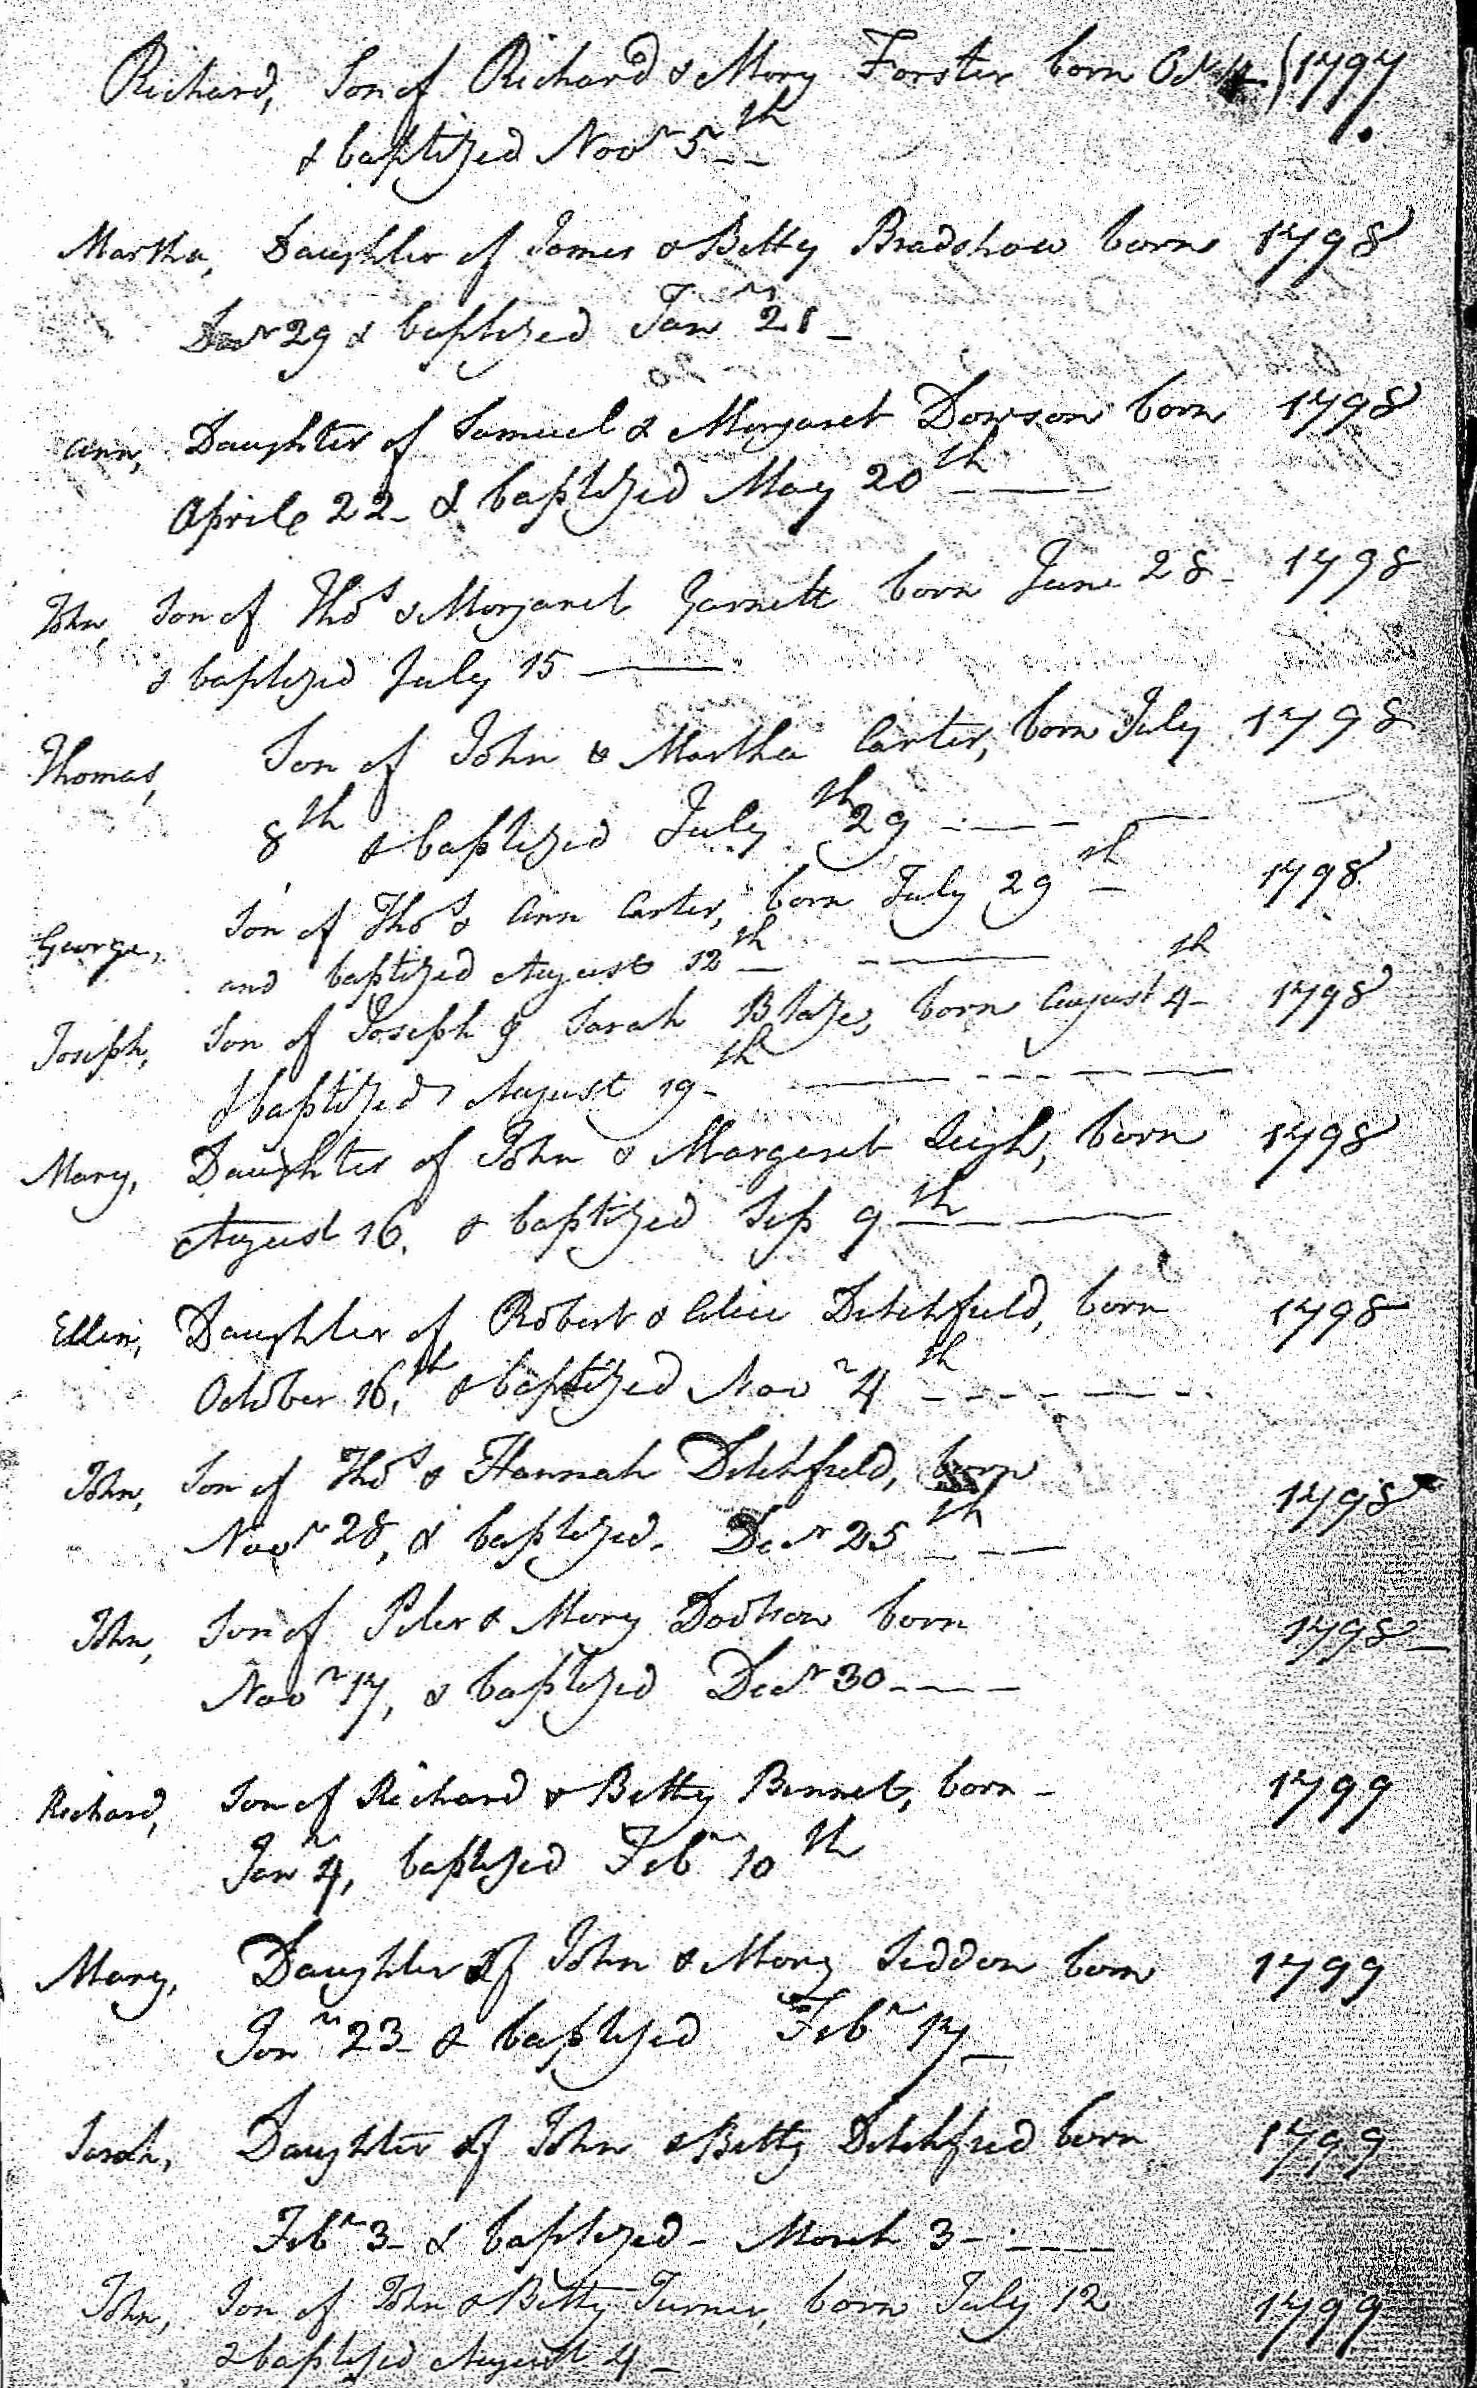 Richard, Son of Richard & Mary Forster born Oct 14 1797
& baptized Novr 5th
Martha, Daughter of James & Betty Bradshaw born 1798
Decr 29 & baptized Janr 21
Ann, Daughter of Samuel & Margaret Dowson born 1798
Aprile 22 & baptized May 20th
John, Son of Thos & Margaret Garnett born June 28 1798
& baptized July 15
Thomas, Son of John & Martha Carter, born July 1798
8th & baptized July 29th
George, Son of Thos & Ann Carter, born July 29th 1798
and baptized August 12th
Joseph, Son of Joseph & Sarah Blaze, born August 4th 1798
& baptized August 19th
Mary, Daughter of John & Margaret Leigh, born 1798
August 16, & baptized Sep 9th
Ellen, Daughter of Robert & Alice Ditchfield, born 1798
October 16,th & baptized Novr 4th
John, Son of Thos & Hannah Ditchfield, born 1798
Novr 28, & baptized Decr 25th
John, Son of Peter & Mary born 1798
Novr 17, & baptized Decr 30
Richard, Son of Richard & Betty Bennet, born 1799
Janr 4, baptized Febr 10th
Mary, Daughter of John & Mary Seddon born 1799
Janr 23 & baptized Febr 17
Sarah, Daughter of John & Betty Ditchfied born 1799
Febr 3 & baptized March 3
John, Son of John & Betty Turner, born July 12 1799
& baptized August 4